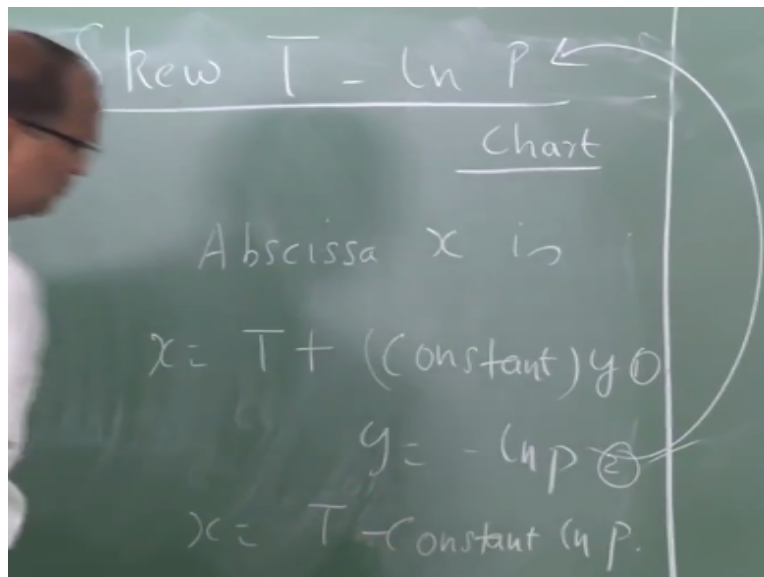 Skew T - ln P
Chart
Abscissa x is
x = T + (Constant) y ①
y = - ln p ②
x = T - Constant ln p.